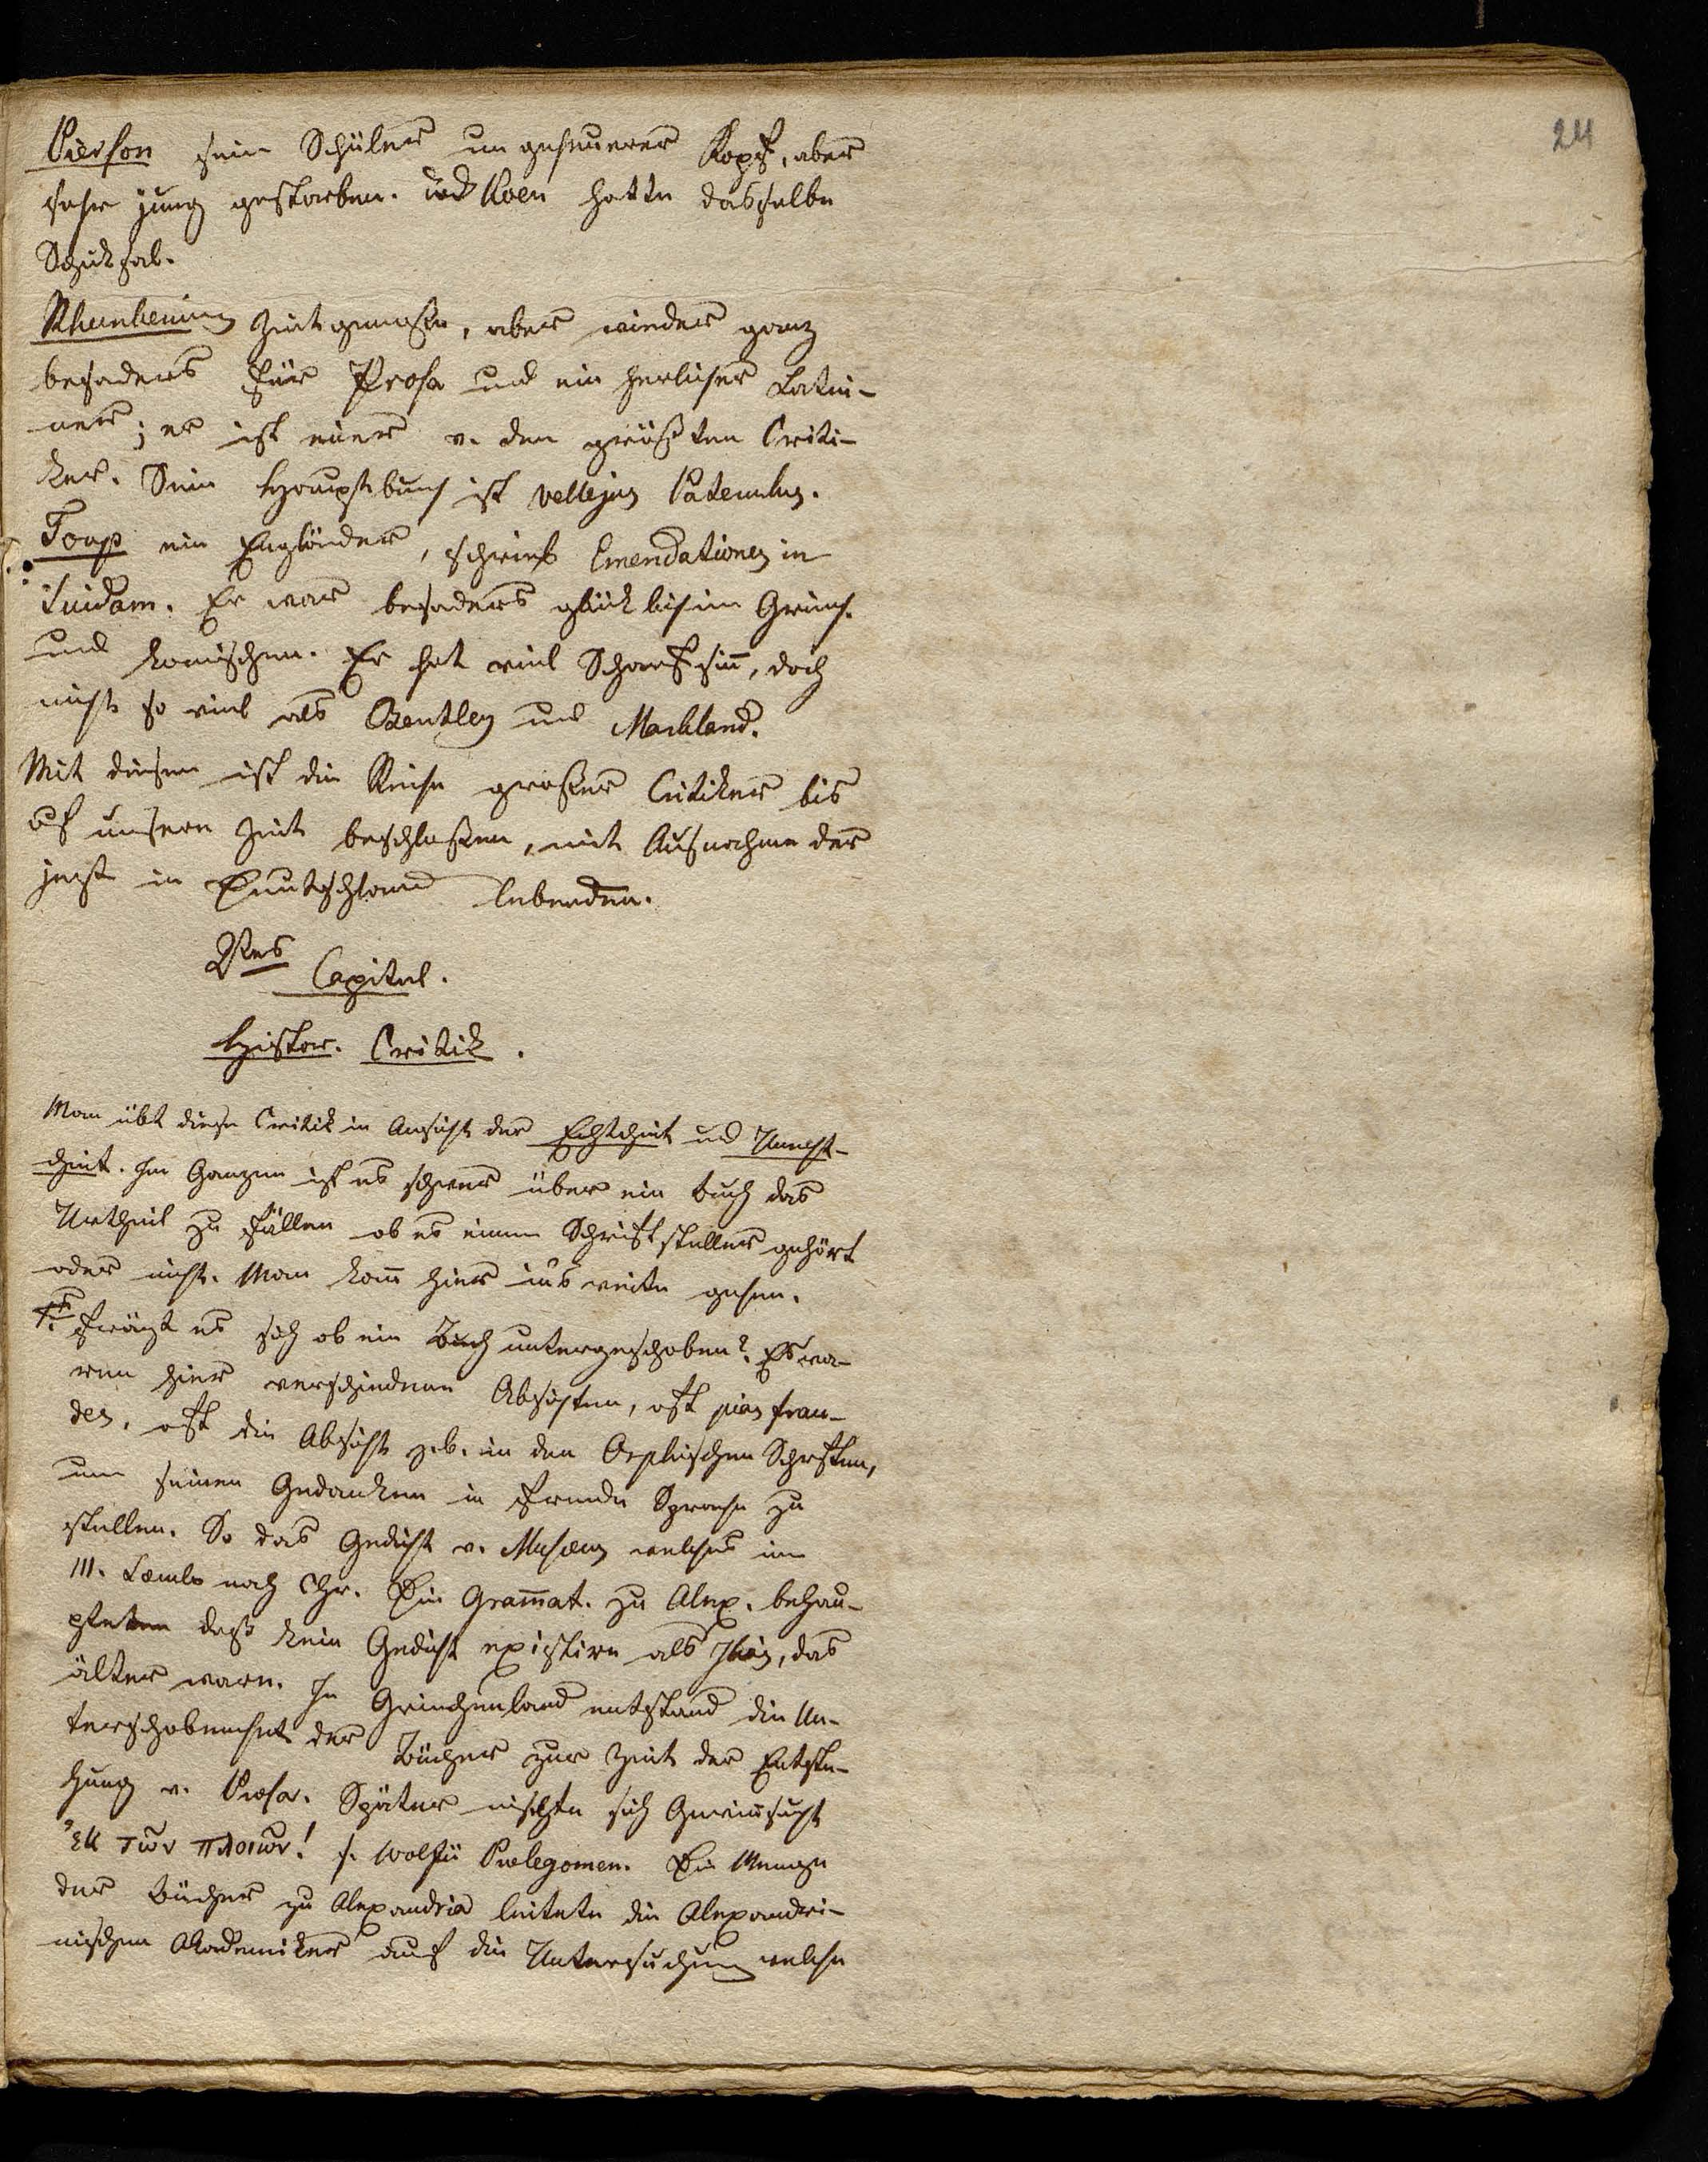 24
Pierson sein Schüler ungeheurer Kopf, aber
sehr jung gestorben. und Koen hatte dasselbe
Schiksal.
Rhunkenius Zeitgenosse, aber wieder ganz
besonders für Prosa und ein herlicher Latei-
ner; er ist einer v. den größten Criti-
ker. Sein Hauptbuch ist Vellejus Paterculus.
Toup ein Engländer, schrieb Emendationes in
Suidam. Er war besonders glücklich im Griech.
und komischen. Er hat viel Scharfsinn, doch
nicht so viel als Bentley und Markland.
Mit diesem ist die Reihe großer Critiker bis
auf unsere Zeit beschloßen, mit Ausnahme der
jezt in Deutschland lebenden.
2tes Capitel.
Histor. Critik.
Man übt diese Critik in Ansicht der Echtheit und Unecht-
heit. Im Ganzen ist es schwer über ein Buch das
Urtheil zu fällen ob es einem Schriftsteller gehört
oder nicht. Man kann hier ins weite gehen.
1. Frägt es sich ob ein Buch untergeschoben? Es wa-
ren hier verschiedene Absichten, oft pias frau-
des, oft die Absicht z.b. in den Orphischen Schriften,
um seinen Gedanken in fremde Sprache zu
stellen. So das Gedicht v. Musaeus welches im
III. Saeculo nach Chr. Die Grammat. zu Alex. behau-
pteten daß kein Gedicht existire als Ilias, das
älter ware. In Griechenland entstand die Un-
terschobenheit der Bücher zur Zeit der Entste-
hung v. Prosa. Später mischte sich Gewinnsucht
ἐκ τῶν πλοιῶν! s. Wolfii Prolegomen. Die Menge
der Bücher zu Alexandria leitete die Alexandri-
nischen Akademiker auf die Untersuchung welche